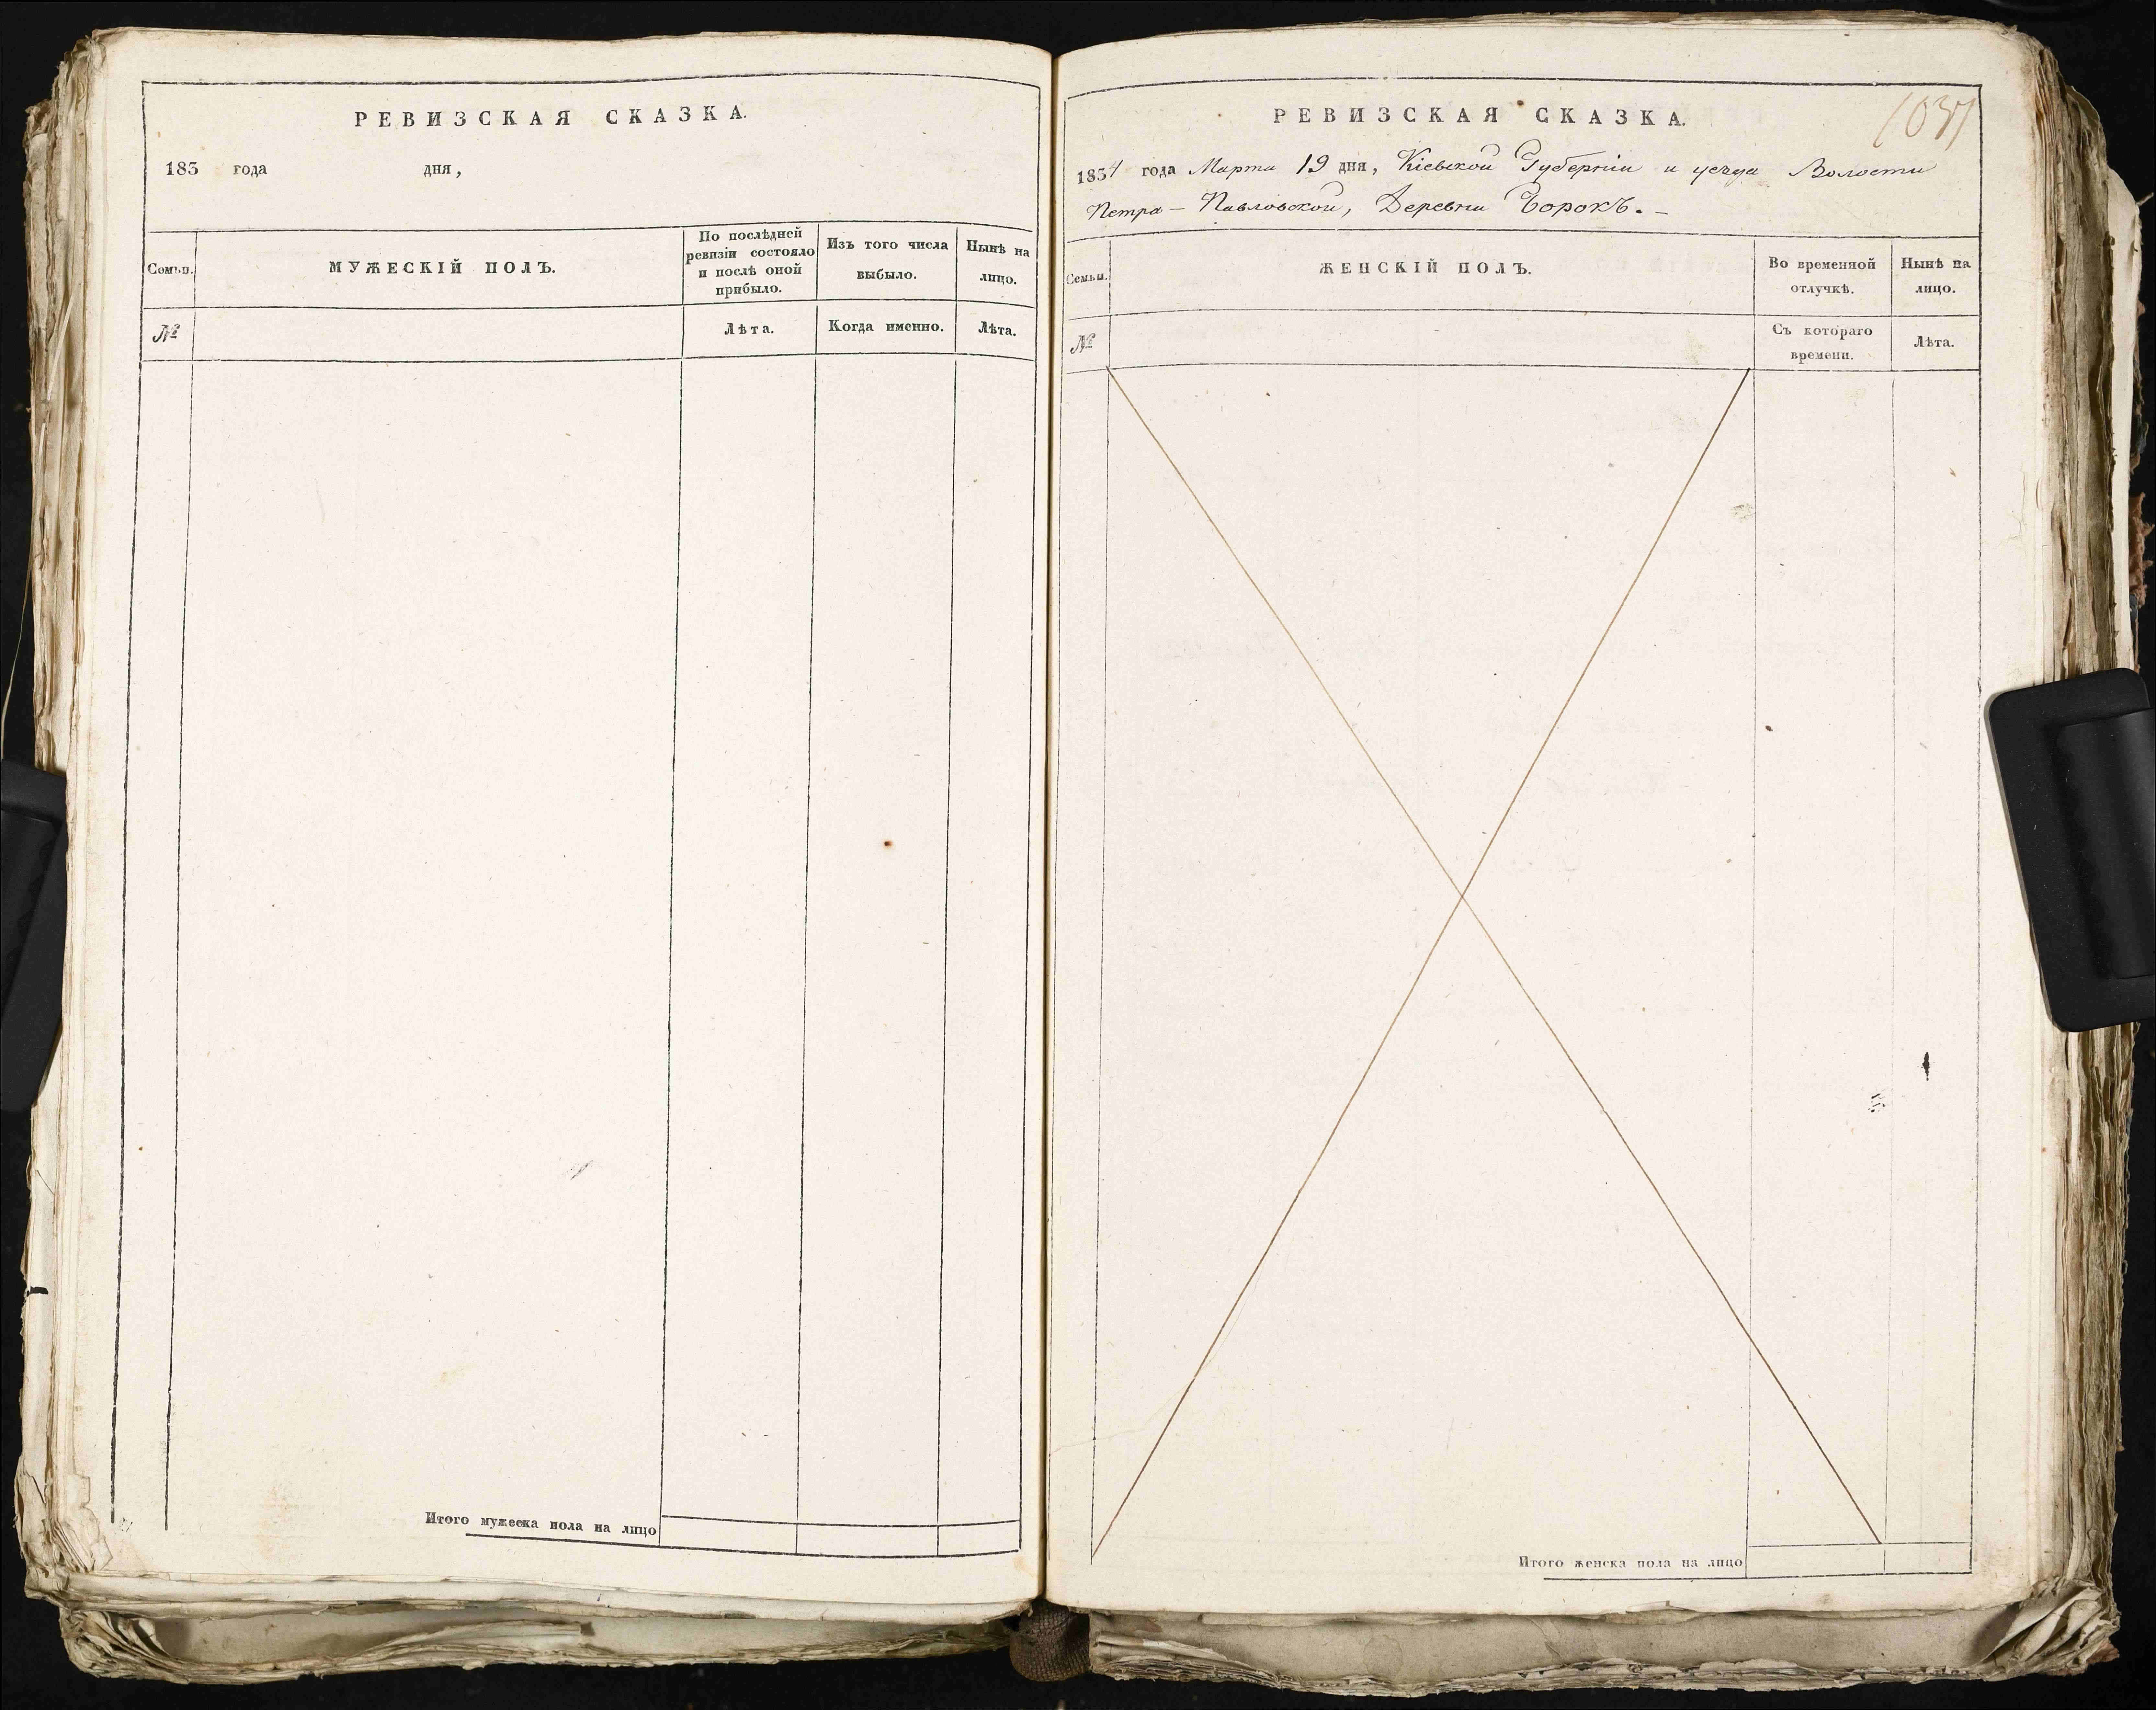 РЕВИЗСКАЯ СКАЗКА.
183 года дня,
Семьи.
МУЖЕСКІЙ ПОЛЪ.
По послѣдней ревизіи состояло и послѣ оной прибыло.
Изъ того числа выбыло.
Нынѣ на лицо.
№
Лѣта.
Когда именно.
Лѣта.
Итого мужеска пола на лицо
1037
РЕВИЗСКАЯ СКАЗКА.
1834 года Марта 19 дня, Кіевской Губерніи и уезда Волости
Петра-Павловской, Деревни Борокъ.-
Семьи.
ЖЕНСКІЙ ПОЛЪ.
Во временной отлучкѣ.
Нынѣ на лицо.
№
Съ котораго времени.
Лѣта.
Итого женска пола на лицо